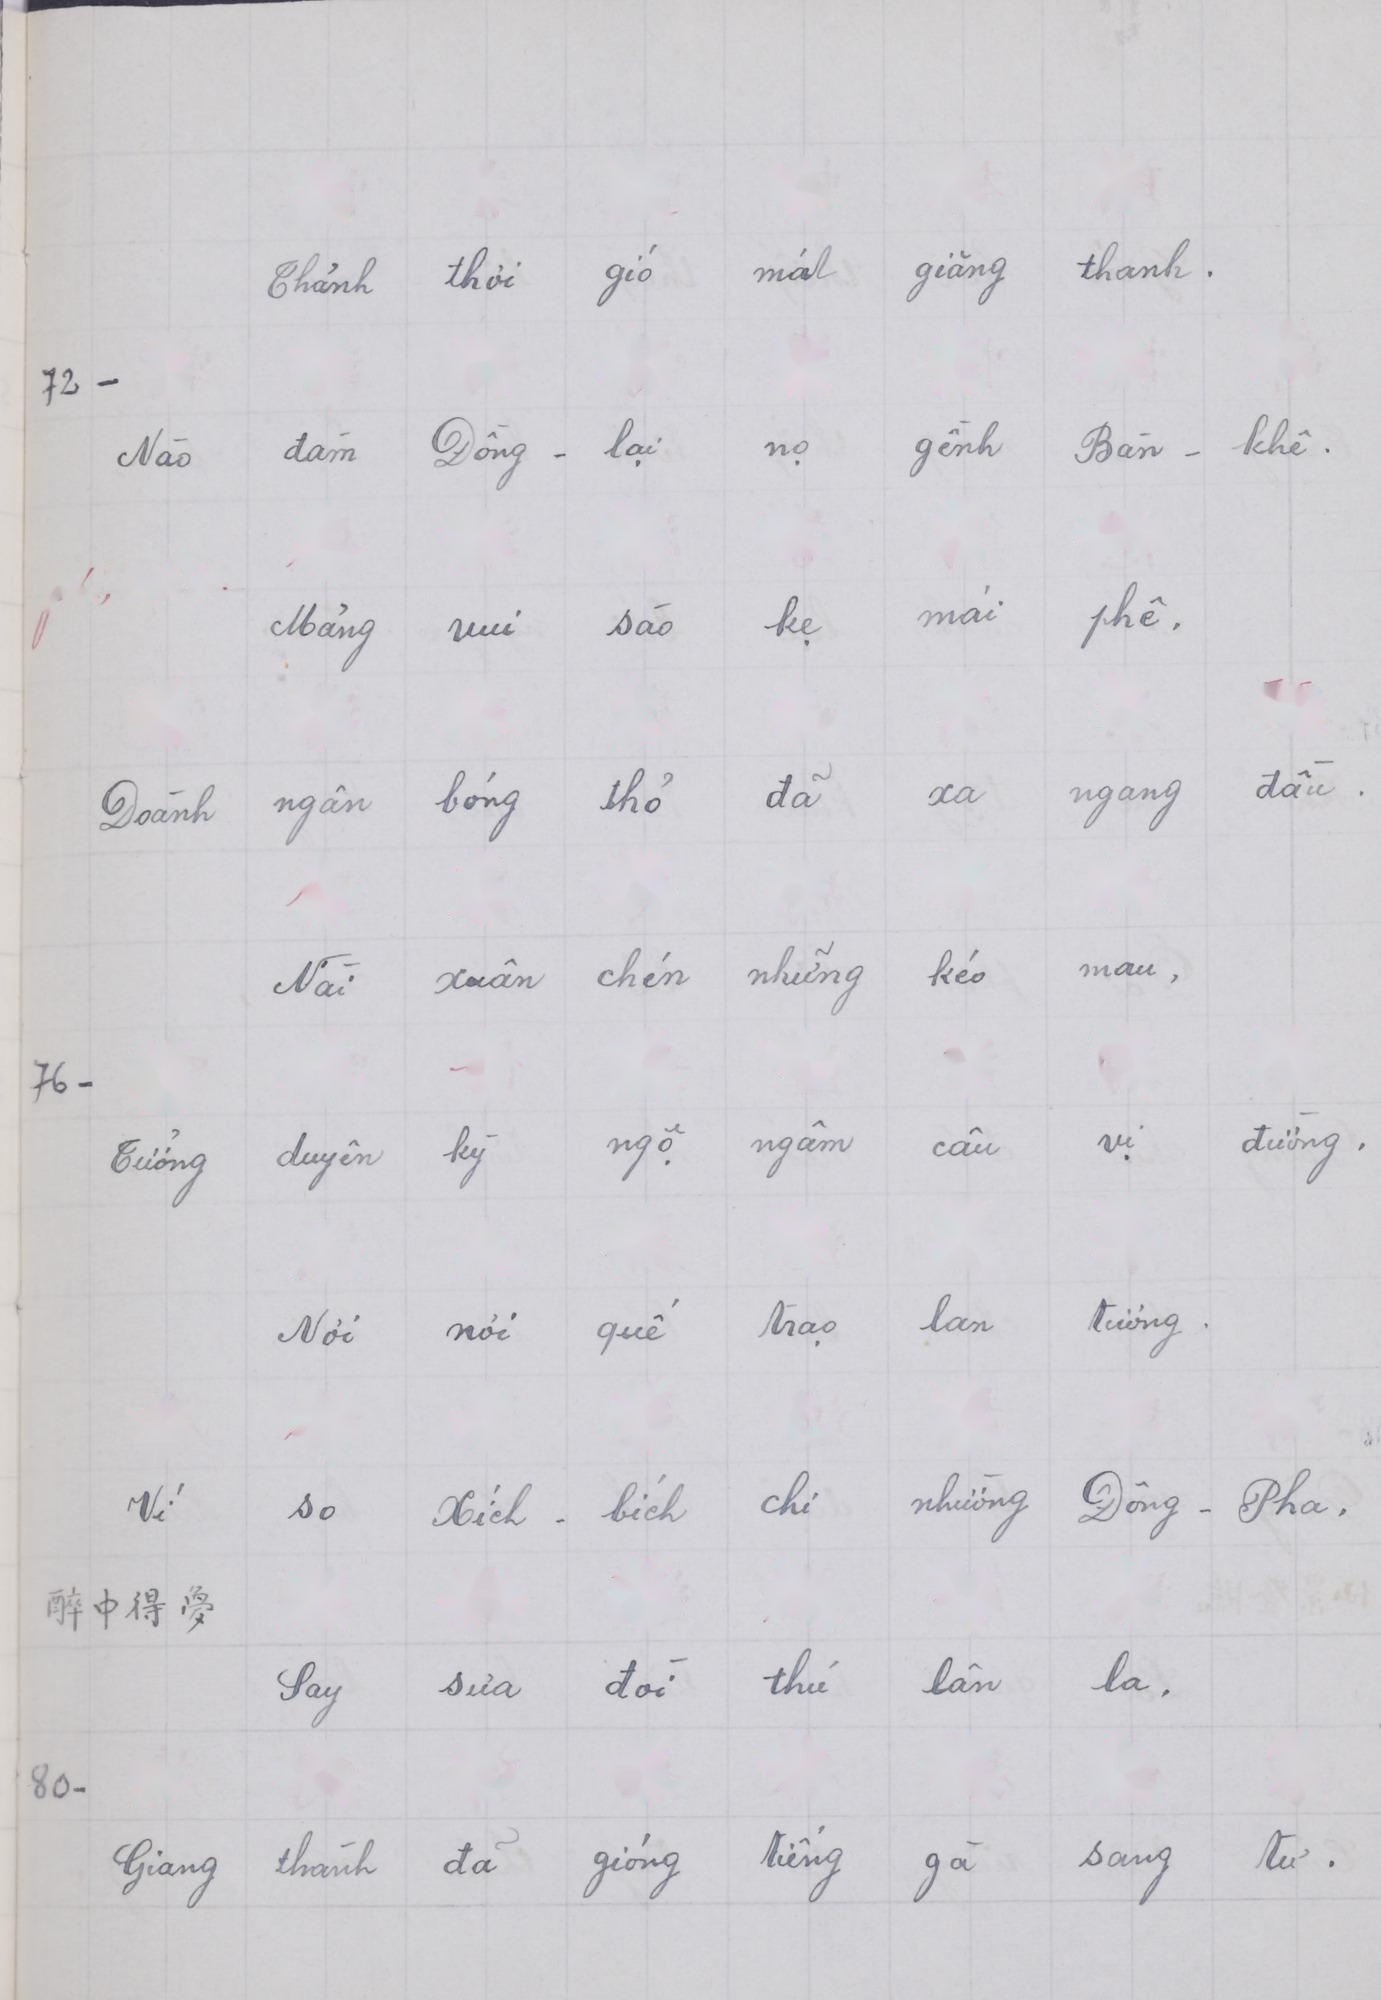 Thảnh thơi gió mát giăng thanh.
72 -
Nào đám Đồng - lại nọ gềnh Bàn - khê.
Mảng vui sáo kẹ mái phê,
Doành ngân bóng thỏ đã xa ngang đầu.
Nài xuân chén những kéo mau,
76 -
Tưởng duyên kỳ ngộ ngâm câu vị đường.
Nơi nơi quế trạo lan tương.
Ví so Xích - bích chi nhường Đông - Pha.
醉中得夢
Say sưa đòi thú lân la,
80 -
Giang thành đã gióng tiếng gà sang tư.